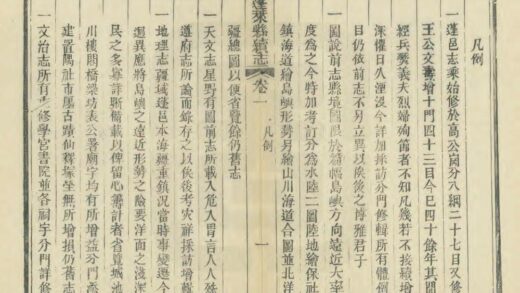 凡例
一蓬邑志乘始修於高公崗分八綱二十七目又修
王公文燾增十門四十三目今已四十餘年其間
經兵燹義夫烈婦殉節者不知凡幾若不接續增
深懼日久湮沒今詳加採訪分門修輯所有體例
目仍依前志不另立異以俟後之博雅君子
一圖說前志縣境圖限於篇幅島嶼方向遠近大率
度為之今特加考訂分為水陸二圖陸地繪保社
鎮海道繪島嶼形勢另繪山川海道合圖並北洋
疆總圖以便省覽餘仍舊志
蓬萊縣續志 卷一 凡例 一
一天文志星野有圖前志所載入危入胃言人人殊
遵府志所論而錄存之以俟後考災祥採訪增載
一地理志疆域蓬邑本海疆重鎮況當時事變遷今
迥異應將島嶼之遠近形勢之險要洋面之淺深
民之多寡詳晰備載以俾留心籌計者省覽城池
川樓閣橋梁坊表公署廟宇均有所增益分門
建置隅社市廛古蹟仙釋塚坐無所增損仍舊志
一文治志所有重修學宮書院並各祠宇分門詳修